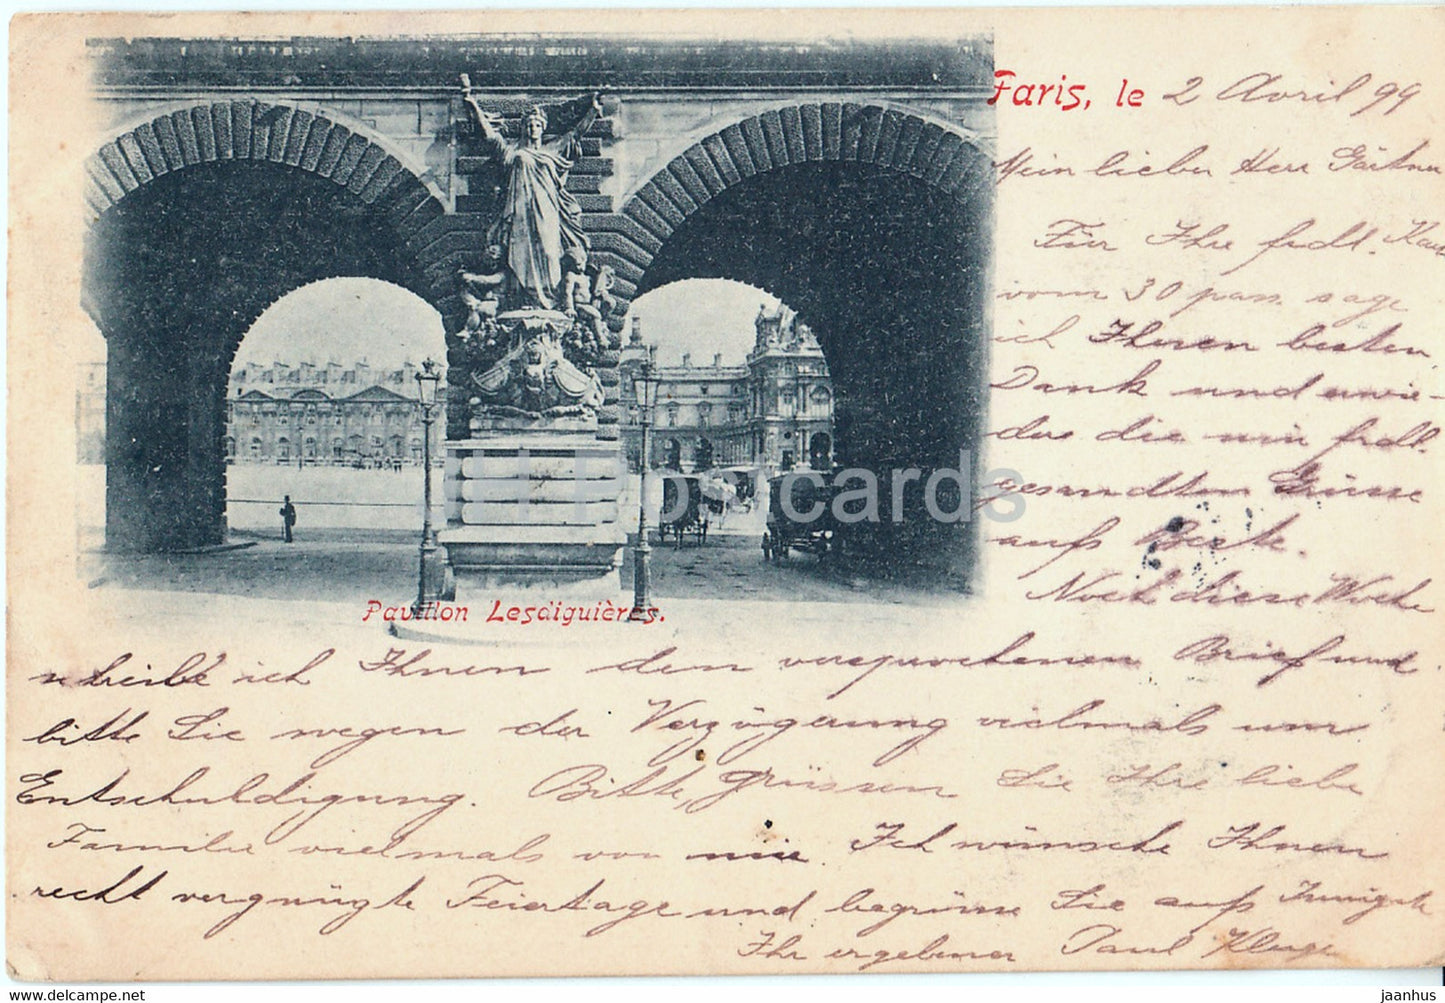 Paris, le 2 Avril 99
Mein lieber Herr Gärtner
Für Ihre frdl.
vom 30 pass. sage
ich Ihnen besten
Dank und erwie-
dre die mir frdl.
gesandten Grüsse
aufs Beste.
Noch diese Woche
Pavillon Lesdiguières.
schreibe ich Ihnen den versprochenen Brief und
bitte Sie wegen der Verzögerung vielmals um
Entschuldigung. Bitte, grüssen Sie Ihre liebe
Familie vielmals von mir. Ich wünsche Ihnen
recht vergnügte Feiertage und begrüsse Sie aufs Innigste
Ihr ergebener Paul
HPostcards
jaanhus
www.delcampe.net